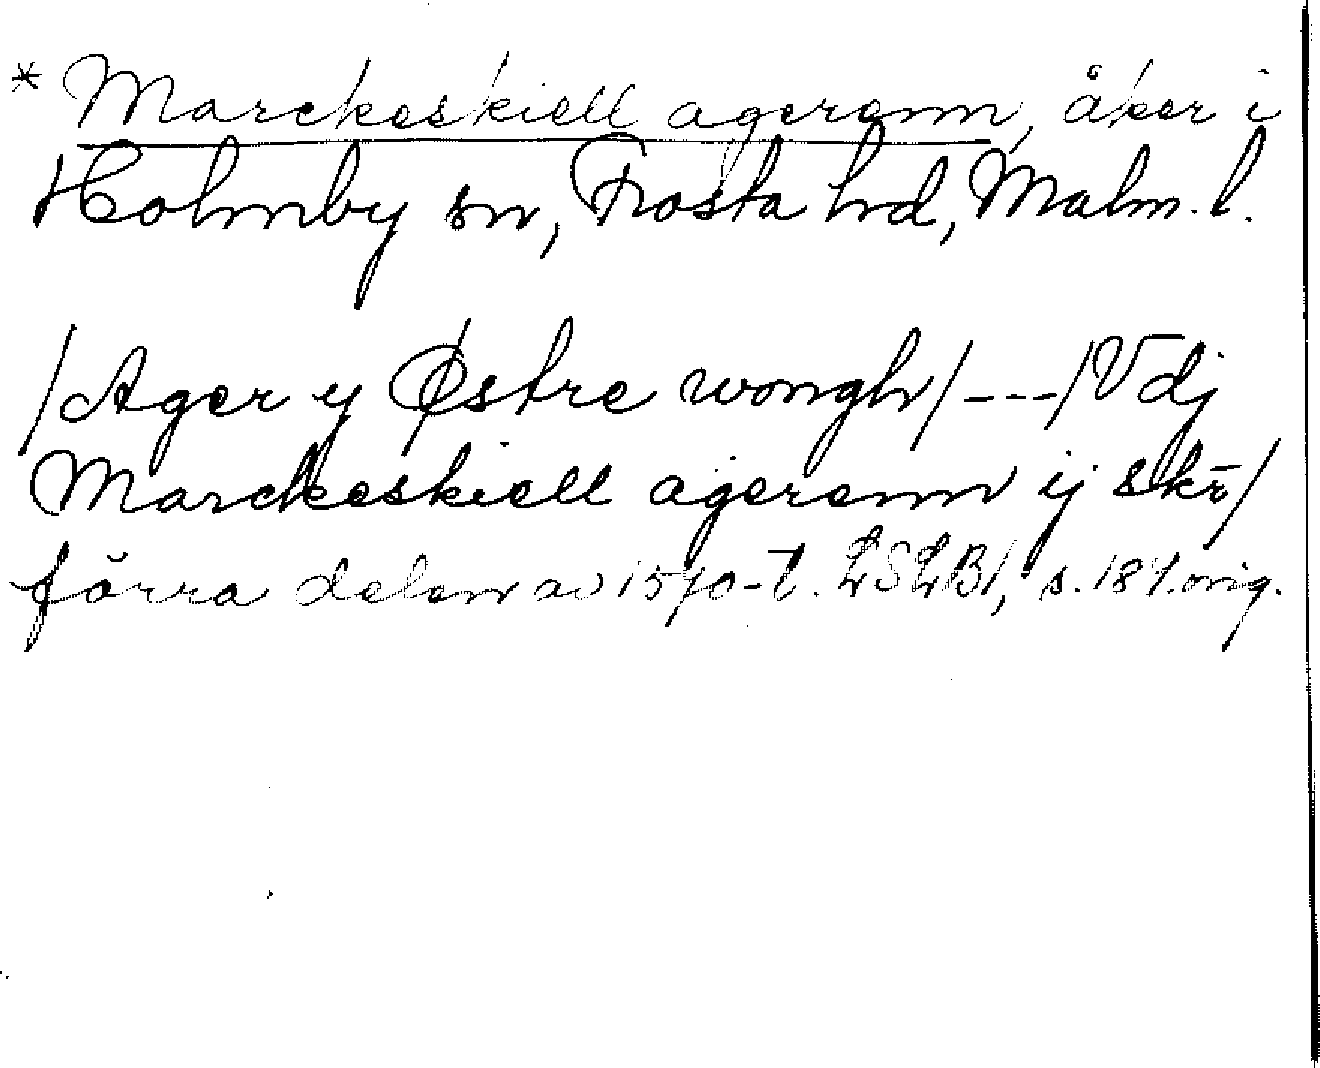 * Marckeskiell agerenn, åker i
Holmby sn, Frosta hd, Malm. l.
/Ager y Østre wongh/---/Vdj
Marckeskiell agerenn ij skr̄/
förra delen av 1570-t. LSLB1, s. 187. orig.